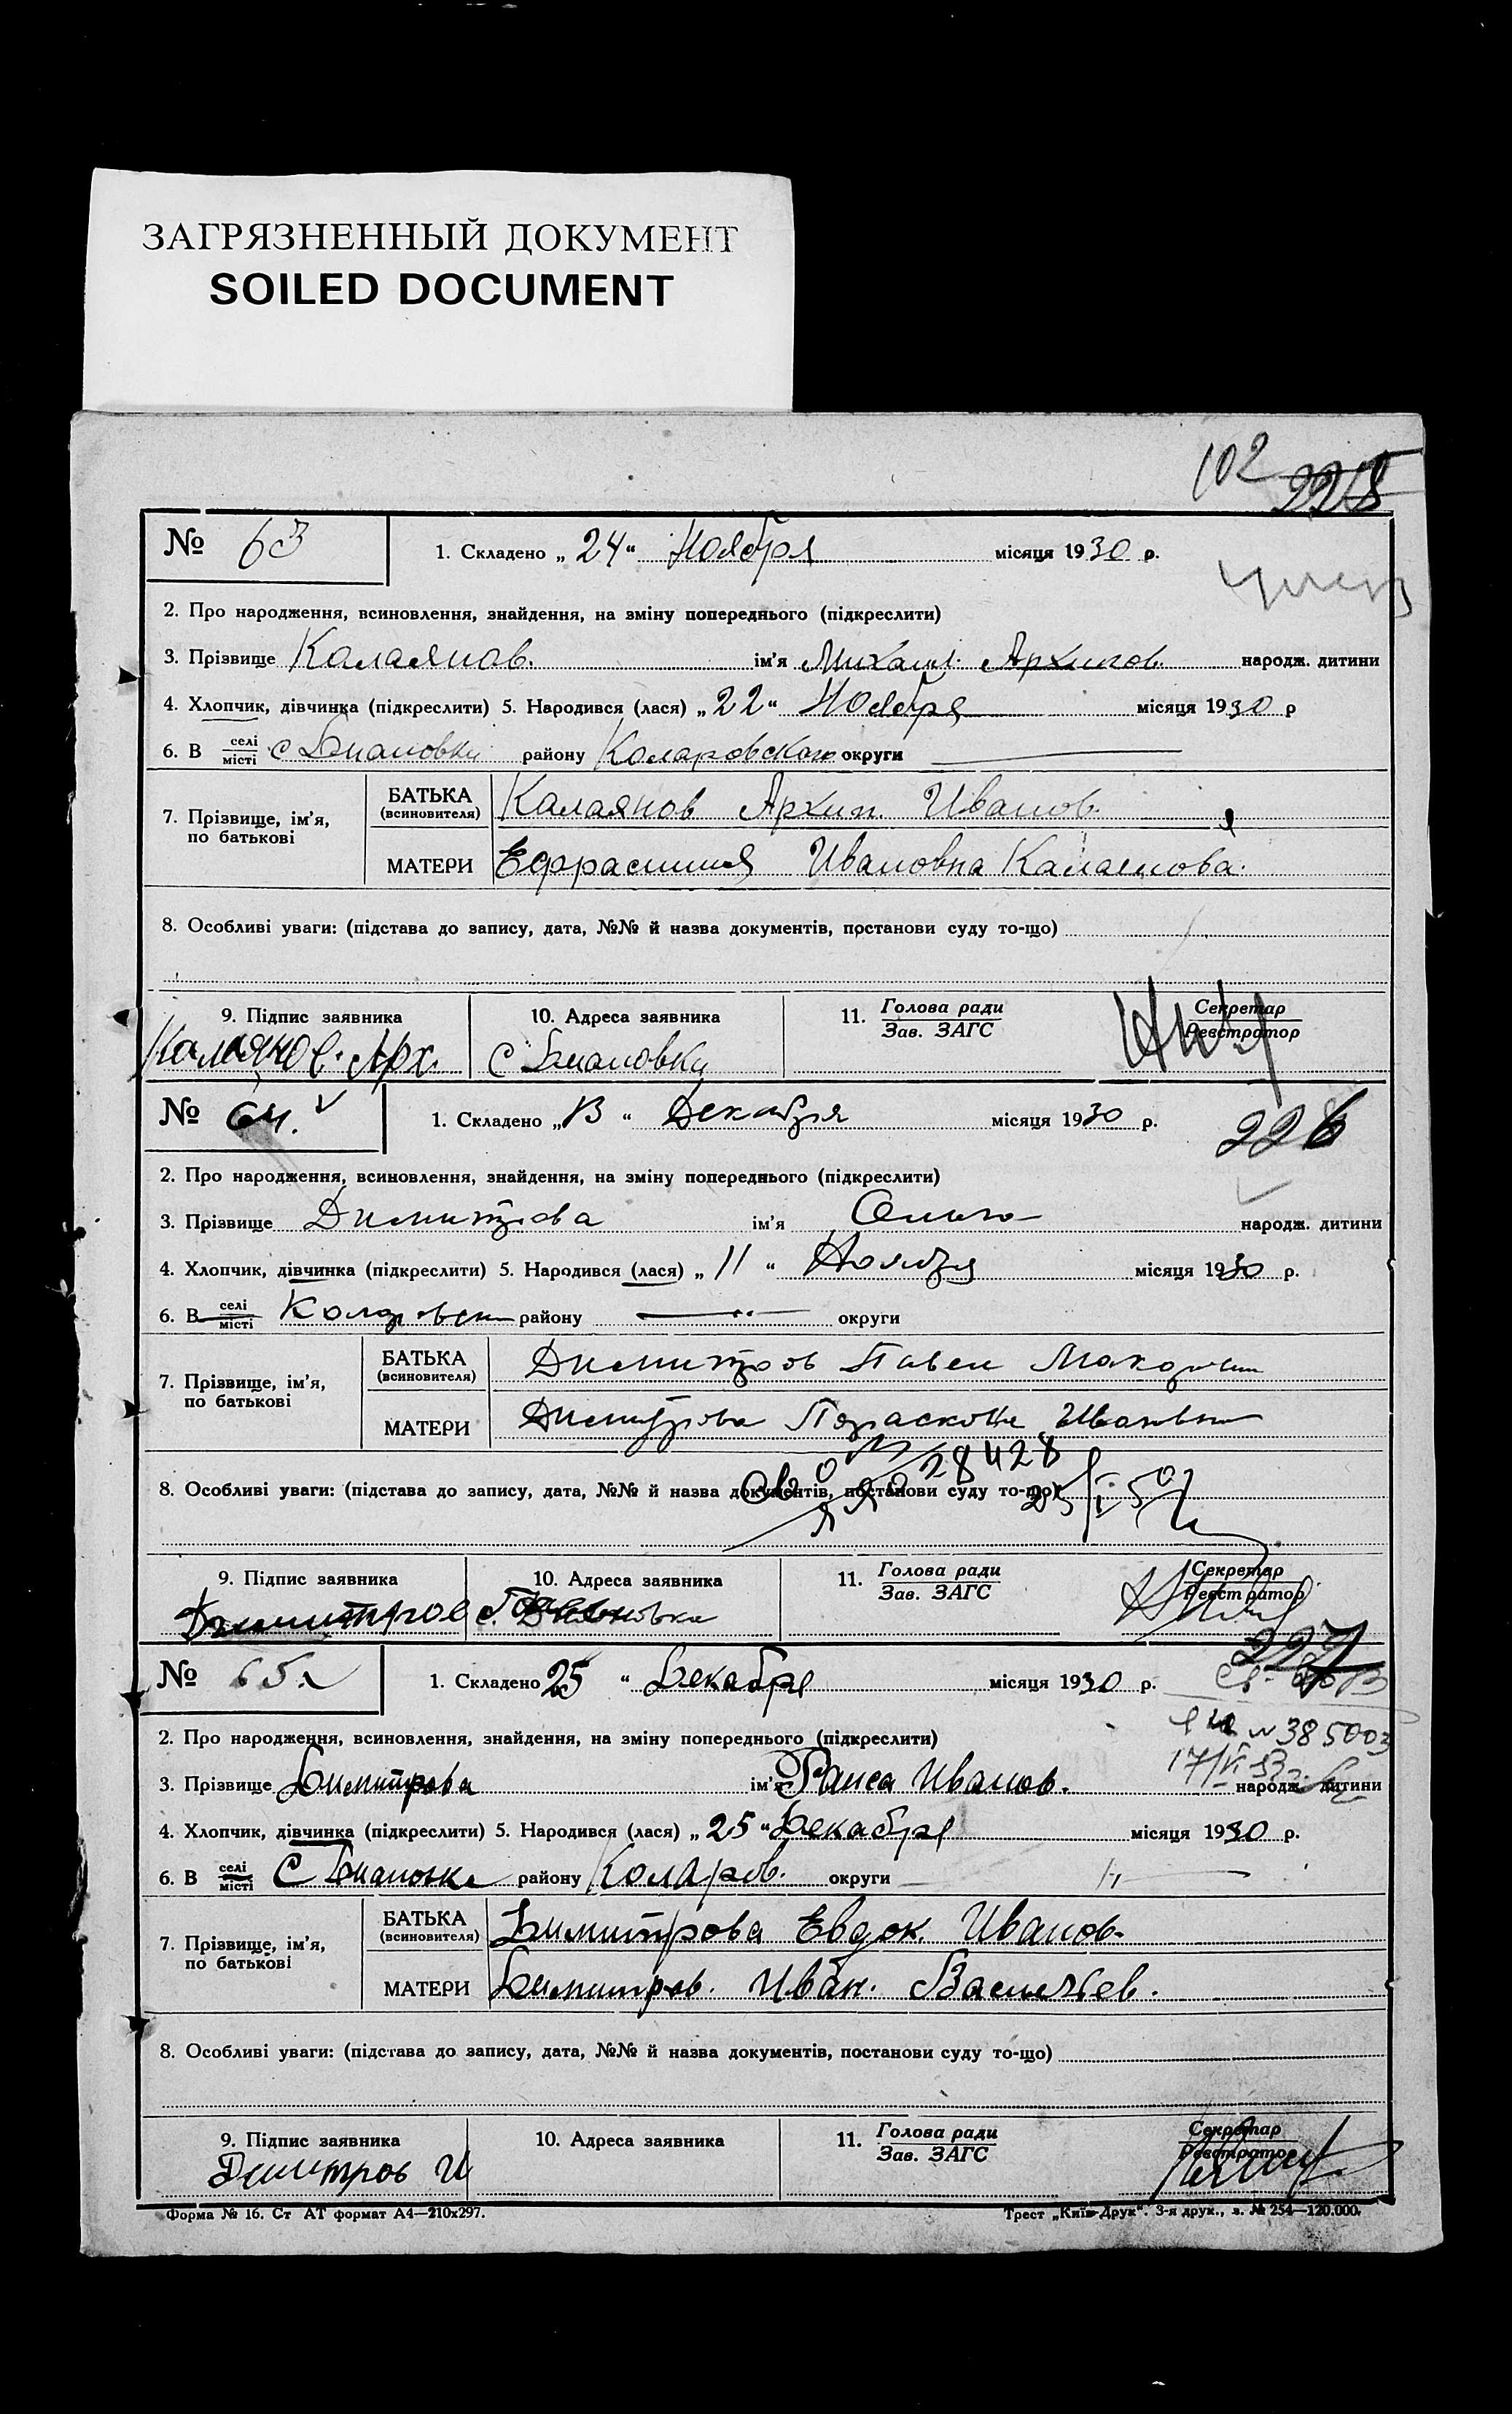 ЗАГРЯЗНЕННЫЙ ДОКУМЕНТ
SOILED DOCUMENT
102 225
№ 63 1. Складено „ 24 “ Ноября місяця 1930 р.
2. Про народження, всиновлення, знайдення, на зміну попереднього (підкреслити)
3. Прізвище Калаянов. ім’я Михаил. Архипов. народж. дитини
4. Хлопчик, дівчинка (підкреслити) 5. Народився (лася) „ 22 “ Ноября місяця 1930 р
6. В селі місті с Диановки району Коларовского округи
7. Прізвище, ім’я, по батькові
БАТЬКА (всиновителя) Калаянов Архип. Иванов.
МАТЕРИ Ефрасиния Ивановна Калаянова.
8. Особливі уваги: (підстава до запису, дата, №№ й назва документів, постанови суду то-що)
9. Підпис заявника 10. Адреса заявника 11. Голова ради Зав. ЗАГС Секретар Реєстратор
Калаянов. Арх. с Диановки
№ 64. 1. Складено „ 13 “ Декабря місяця 1930 р. 226
2. Про народження, всиновлення, знайдення, на зміну попереднього (підкреслити)
3. Прізвище Димитрова ім’я народж. дитини
4. Хлопчик, дівчинка (підкреслити) 5. Народився (лася) „ 11 “ Ноября місяця 1930 р.
6. В селі місті району округи
7. Прізвище, ім’я, по батькові
БАТЬКА (всиновителя) Димитров Павел
МАТЕРИ Димитрова Параскова Ивановн
28428
8. Особливі уваги: (підстава до запису, дата, №№ й назва документів, постанови суду то-що)
9. Підпис заявника 10. Адреса заявника 11. Голова ради Зав. ЗАГС Секретар Реєстратор
Димитров с. Диановка
227
№ 65 1. Складено 25 “ Декабря місяця 1930 р.
№ 385003
2. Про народження, всиновлення, знайдення, на зміну попереднього (підкреслити)
3. Прізвище Димитрова ім’я Раиса Иванов. народж. дитини
4. Хлопчик, дівчинка (підкреслити) 5. Народився (лася) „ 25 “ Декабря місяця 1930 р.
6. В селі місті С Диановка району Коларов. округи
7. Прізвище, ім’я, по батькові
БАТЬКА (всиновителя) Димитрова Евдок. Иванов.
МАТЕРИ Димитров. Иван. Васильев.
8. Особливі уваги: (підстава до запису, дата, №№ й назва документів, постанови суду то-що)
9. Підпис заявника 10. Адреса заявника 11. Голова ради Зав. ЗАГС Секретар Реєстратор
Димитров И
Форма № 16. Ст АТ формат А4—210х297. Трест „Київ-Друк“. 3-я друк., з. № 254—120.000.